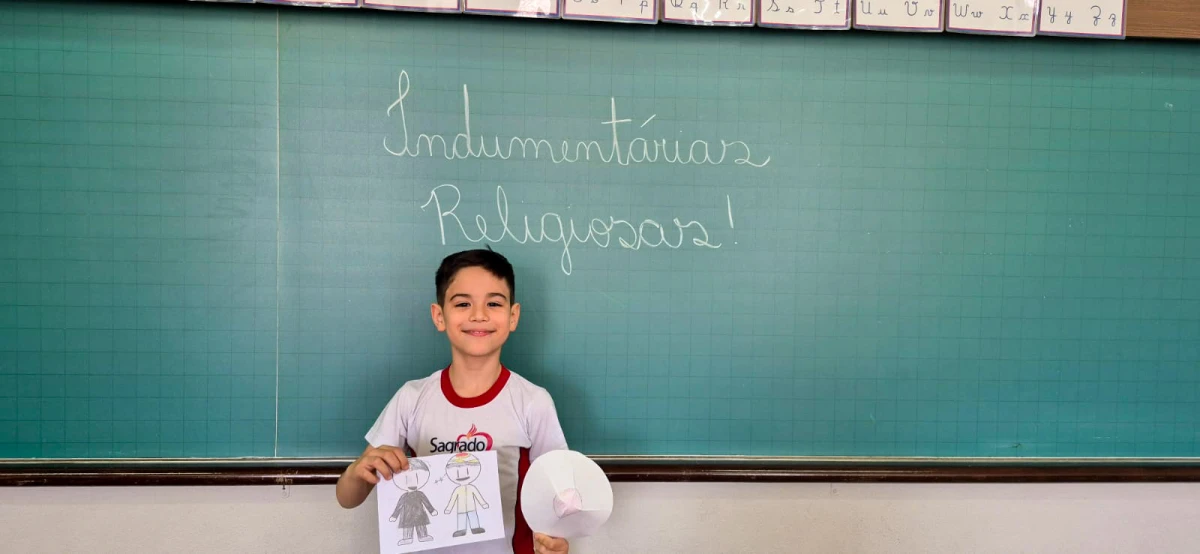 Q q R r S s T t U u V v W w X x Y y Z z
Indumentárias
Religiosas!
Sagrado